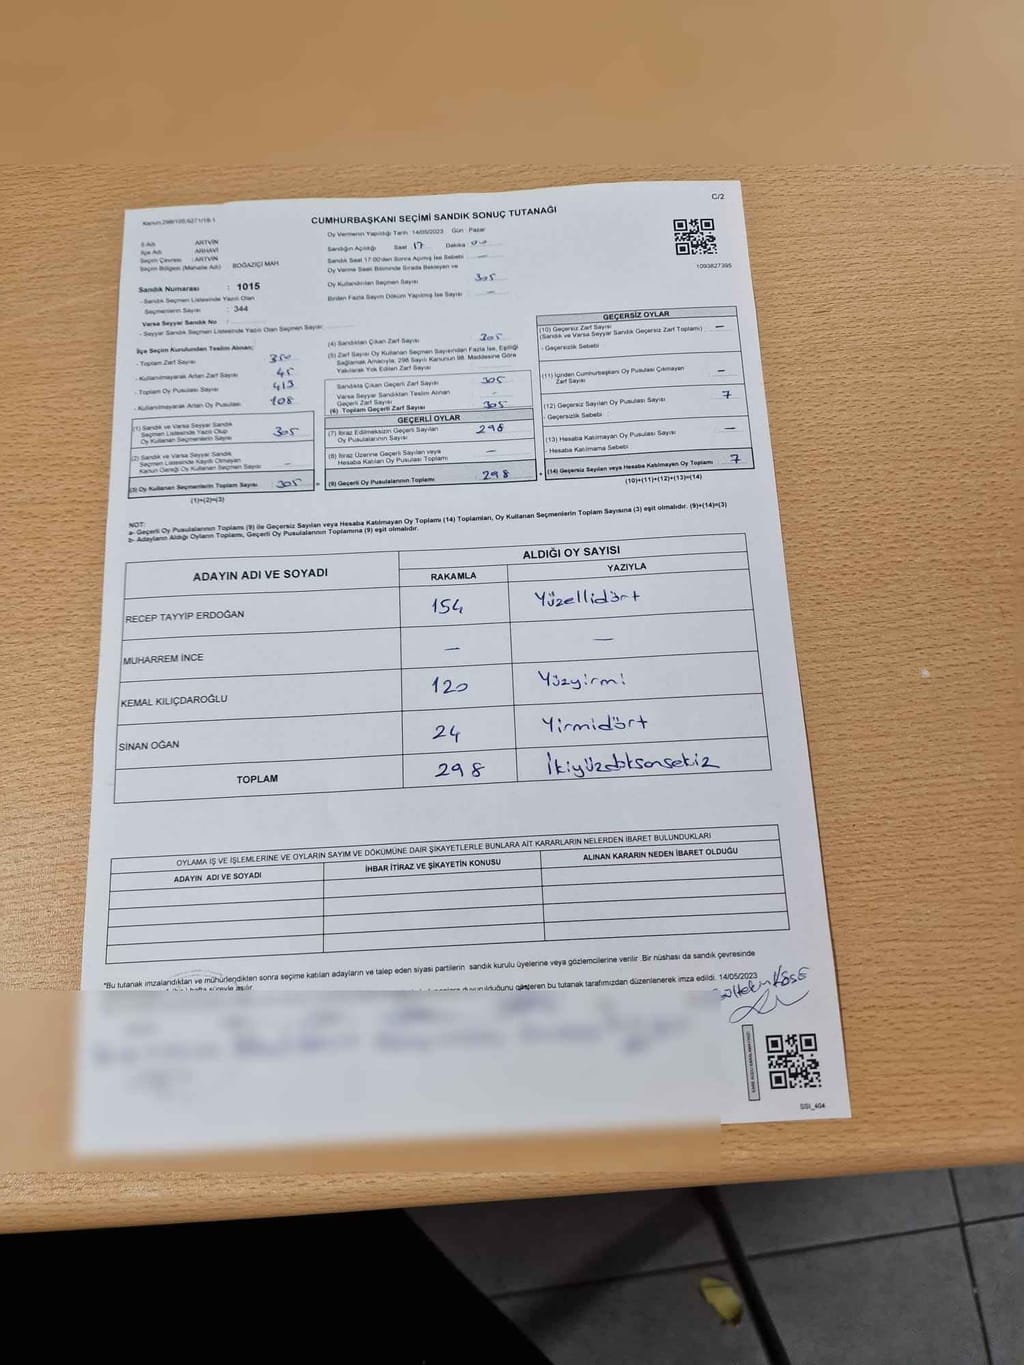 C/2
Kanun 298/105,6271/18-1
CUMHURBAŞKANI SEÇİMİ SANDIK SONUÇ TUTANAĞI
İl Adı : ARTVİN
İlçe Adı : ARHAVİ
Seçim Çevresi : ARTVİN
Seçim Bölgesi (Mahalle Adı) : BOĞAZİÇİ MAH
Sandık Numarası : 1015
- Sandık Seçmen Listesinde Yazılı Olan
Seçmenlerin Sayısı : 344
Varsa Seyyar Sandık No :
- Seyyar Sandık Seçmen Listesinde Yazılı Olan Seçmen Sayısı:
Oy Vermenin Yapıldığı Tarih 14/05/2023 Gün Pazar
Sandığın Açıldığı Saat 17 Dakika 00
Sandık Saat 17.00'den Sonra Açılmış İse Sebebi : —
Oy Verme Saati Bitiminde Sırada Bekleyen ve
Oy Kullandırılan Seçmen Sayısı 305
Birden Fazla Sayım Döküm Yapılmış İse Sayısı : —
1093827395
İlçe Seçim Kurulundan Teslim Alınan;
- Toplam Zarf Sayısı : 350
- Kullanılmayarak Artan Zarf Sayısı : 45
- Toplam Oy Pusulası Sayısı : 413
- Kullanılmayarak Artan Oy Pusulası : 108
(1) Sandık ve Varsa Seyyar Sandık
Seçmen Listesinde Yazılı Olup
Oy Kullanan Seçmenlerin Sayısı : 305
(2) Sandık ve Varsa Seyyar Sandık
Seçmen Listesinde Kaydı Olmayan
Kanun Gereği Oy Kullanan Seçmen Sayısı : —
(3) Oy Kullanan Seçmenlerin Toplam Sayısı : 305
(1)+(2)=(3)
(4) Sandıktan Çıkan Zarf Sayısı 305
(5) Zarf Sayısı Oy Kullanan Seçmen Sayısı'ndan Fazla İse, Eşitliği
Sağlamak Amacıyla; 298 Sayılı Kanunun 98. Maddesine Göre
Yakılarak Yok Edilen Zarf Sayısı
Sandıkta Çıkan Geçerli Zarf Sayısı 305
Varsa Seyyar Sandıktan Teslim Alınan
Geçerli Zarf Sayısı -
(6) Toplam Geçerli Zarf Sayısı 305
GEÇERLİ OYLAR
(7) İtiraz Edilmeksizin Geçerli Sayılan
Oy Pusulalarının Sayısı 298
(8) İtiraz Üzerine Geçerli Sayılan veya
Hesaba Katılan Oy Pusulası Toplamı —
(9) Geçerli Oy Pusulalarının Toplamı 298
GEÇERSİZ OYLAR
(10) Geçersiz Zarf Sayısı
(Sandık ve Varsa Seyyar Sandık Geçersiz Zarf Toplamı) —
- Geçersizlik Sebebi :
(11) İçinden Cumhurbaşkanı Oy Pusulası Çıkmayan
Zarf Sayısı —
(12) Geçersiz Sayılan Oy Pusulası Sayısı 7
- Geçersizlik Sebebi :
(13) Hesaba Katılmayan Oy Pusulası Sayısı —
- Hesaba Katılmama Sebebi :
(14) Geçersiz Sayılan veya Hesaba Katılmayan Oy Toplamı 7
(10)+(11)+(12)+(13)=(14)
NOT:
a- Geçerli Oy Pusulalarının Toplamı (9) ile Geçersiz Sayılan veya Hesaba Katılmayan Oy Toplamı (14) Toplamları, Oy Kullanan Seçmenlerin Toplam Sayısına (3) eşit olmalıdır. (9)+(14)=(3)
b- Adayların Aldığı Oyların Toplamı, Geçerli Oy Pusulalarının Toplamına (9) eşit olmalıdır.
ADAYIN ADI VE SOYADI
ALDIĞI OY SAYISI
RAKAMLA YAZIYLA
RECEP TAYYİP ERDOĞAN 154 Yüzellidört
MUHARREM İNCE — —
KEMAL KILIÇDAROĞLU 120 Yüzyirmi
SİNAN OĞAN 24 Yirmidört
TOPLAM 298 İkiyüzdoksansekiz
OYLAMA İŞ VE İŞLEMLERİNE VE OYLARIN SAYIM VE DÖKÜMÜNE DAİR ŞİKAYETLERLE BUNLARA AİT KARARLARIN NELERDEN İBARET BULUNDUKLARI
ADAYIN ADI VE SOYADI İHBAR İTİRAZ VE ŞİKAYETİN KONUSU ALINAN KARARIN NEDEN İBARET OLDUĞU
*Bu tutanak imzalandıktan ve mühürlendikten sonra seçime katılan adayların ve talep eden siyasi partilerin sandık kurulu üyelerine veya gözlemcilerine verilir. Bir nüshası da sandık çevresinde
hafta süreyle asılır. duyurulduğunu gösteren bu tutanak tarafımızdan düzenlenerek imza edildi. 14/05/2023
KÖSE
SSI_404